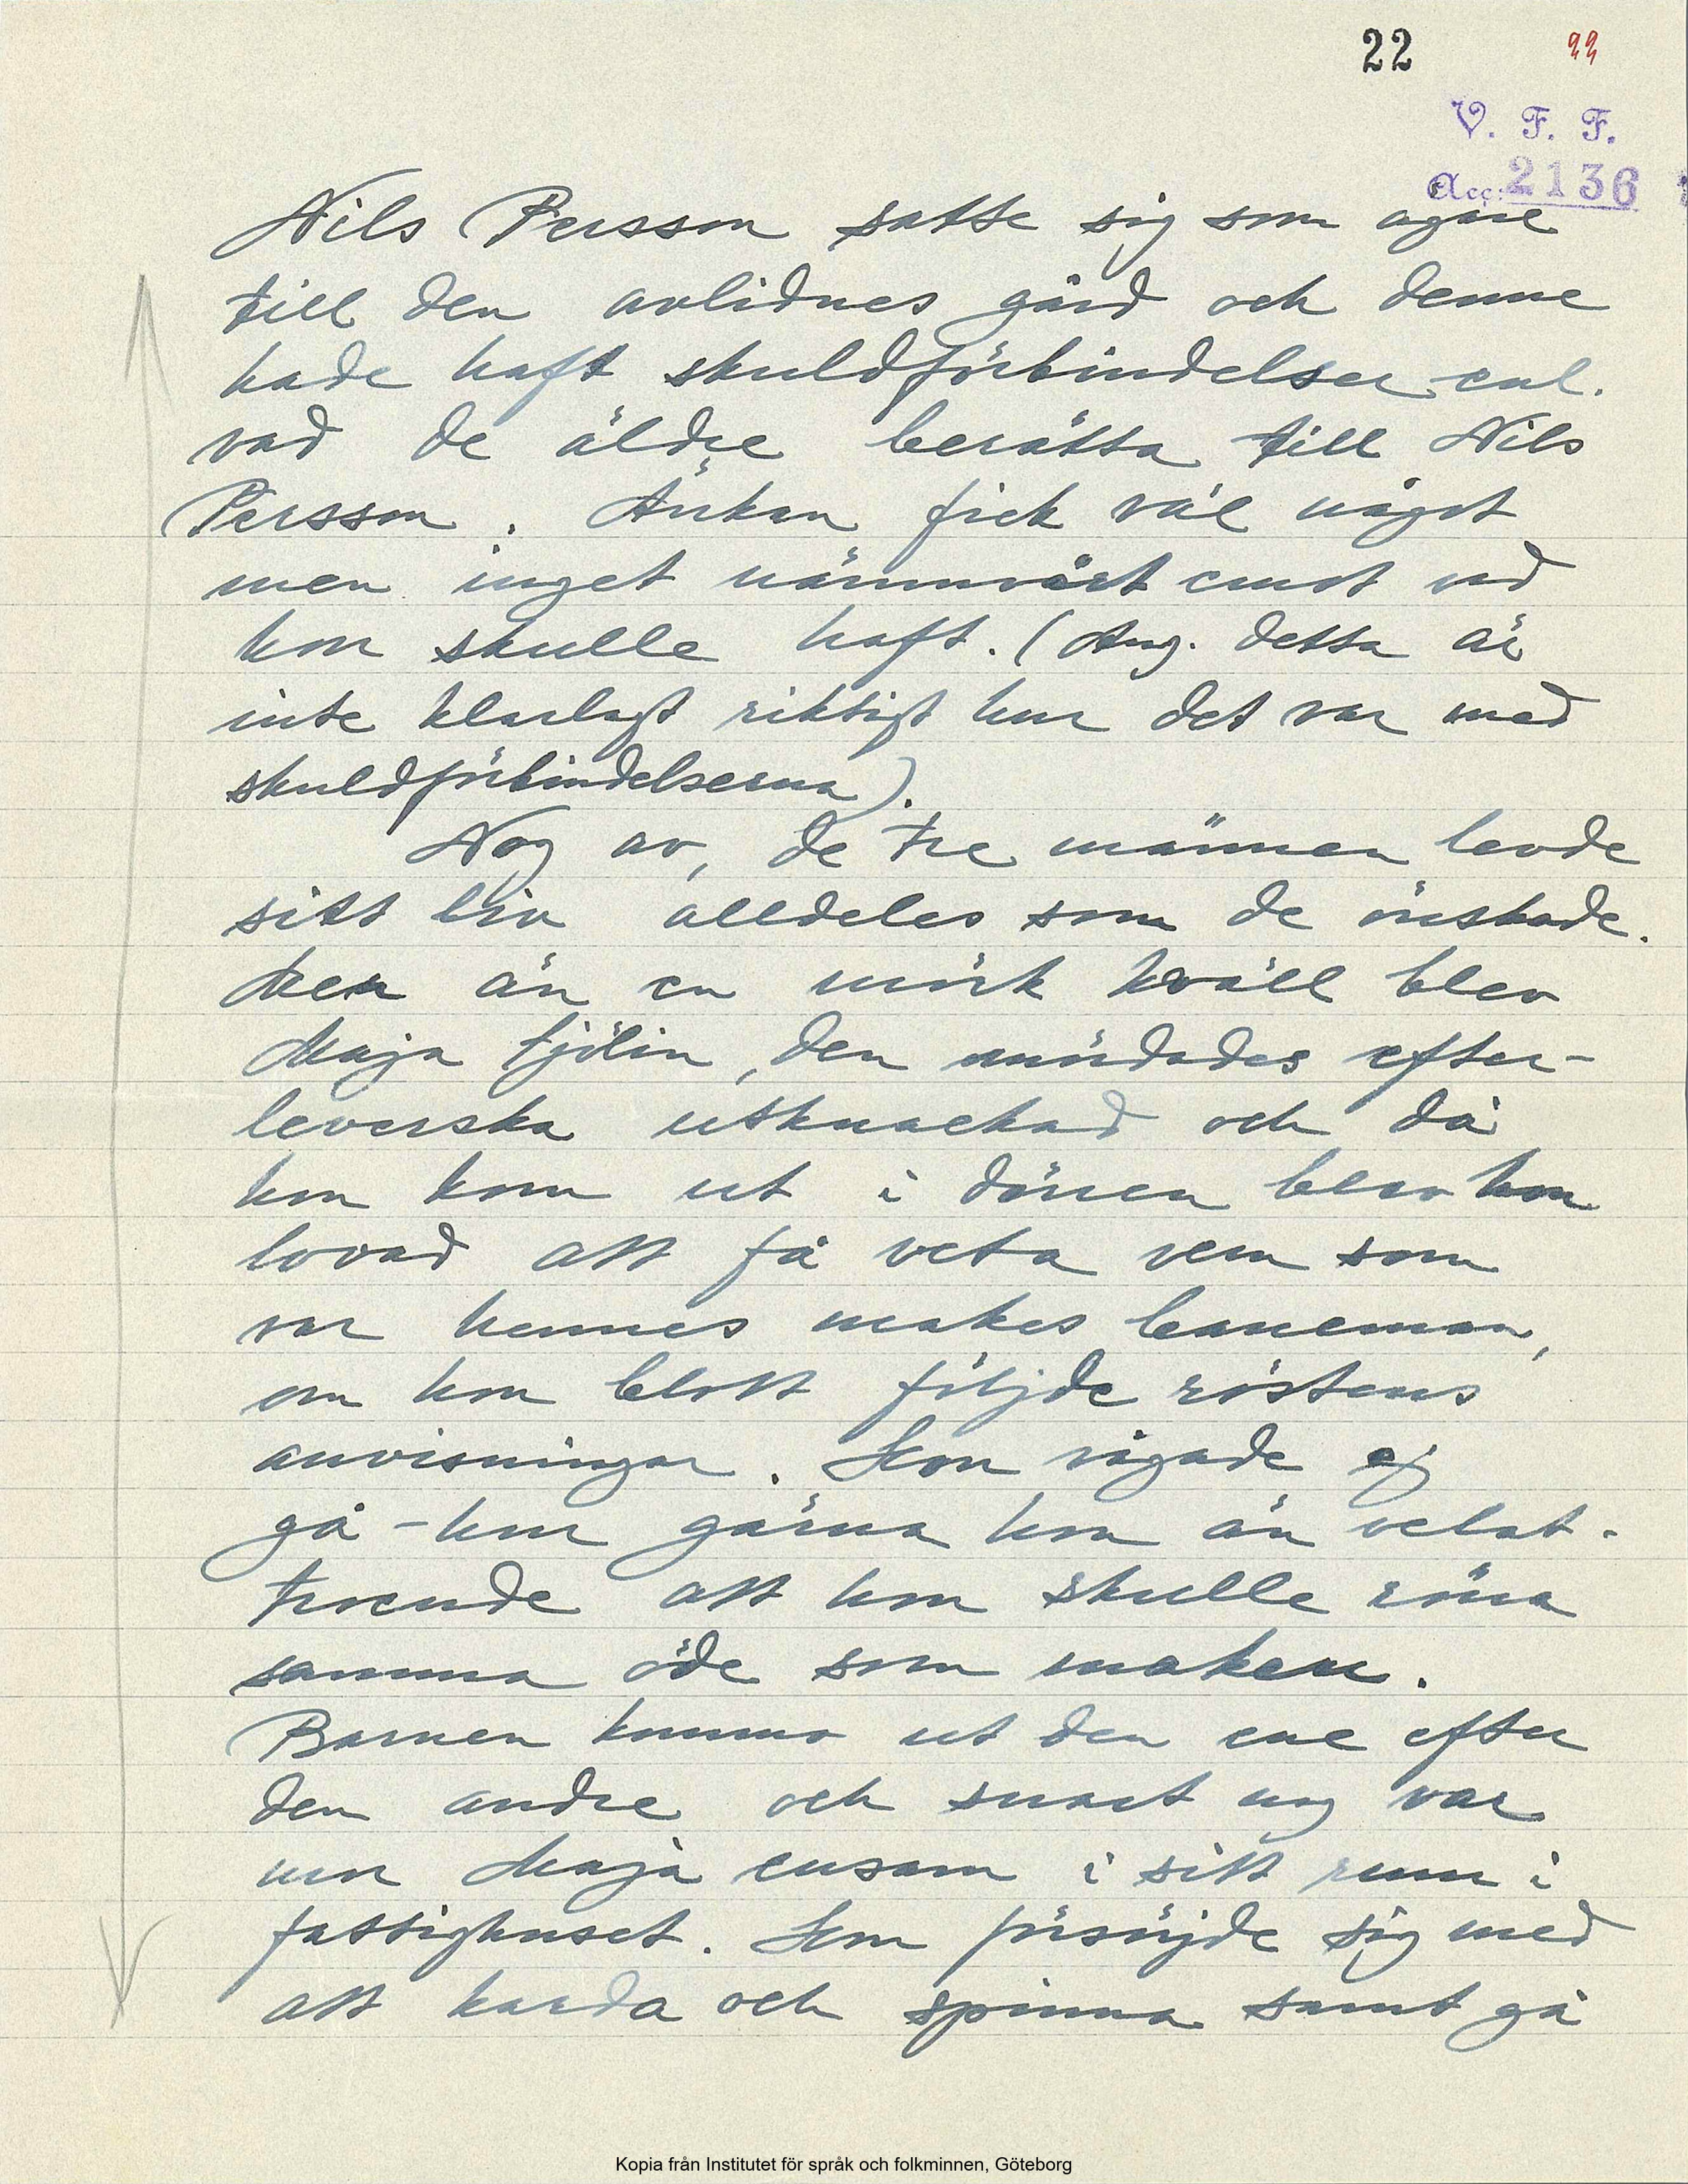 22 22
V. F. F.
Acc: 2136
Nils Persson satte sig som ägare
till den avlidnes gård och denne
hade haft skuldförbindelser enl.
vad de äldre berätta till Nils
Persson. Änkan fick väl något
men inget nämnvärt emot vad
hon skulle haft. (Ang. detta är
inte klarlagt riktigt hur det var med
skuldförbindelserna).
Nog av, de tre männen levde
sitt liv alldeles som de önskade.
Men än en mörk kväll blev
Maja Sjölin, den mördades efter-
leverska utknackad och då
hon kom ut i dörren blev hon
lovad att få veta vem som
var hennes makes baneman,
om hon blott följde röstens
anvisningar. Hon vågade ej
gå - hur gärna hon än velat -
troende att hon skulle röna
samma öde som maken.
Barnen kommo ut den ene efter
den andre och snart nog var
mor Maja ensam i sitt rum i
fattighuset. Hon försörjde sig med
att karda och spinna samt gå
Kopia från Institutet för språk och folkminnen, Göteborg